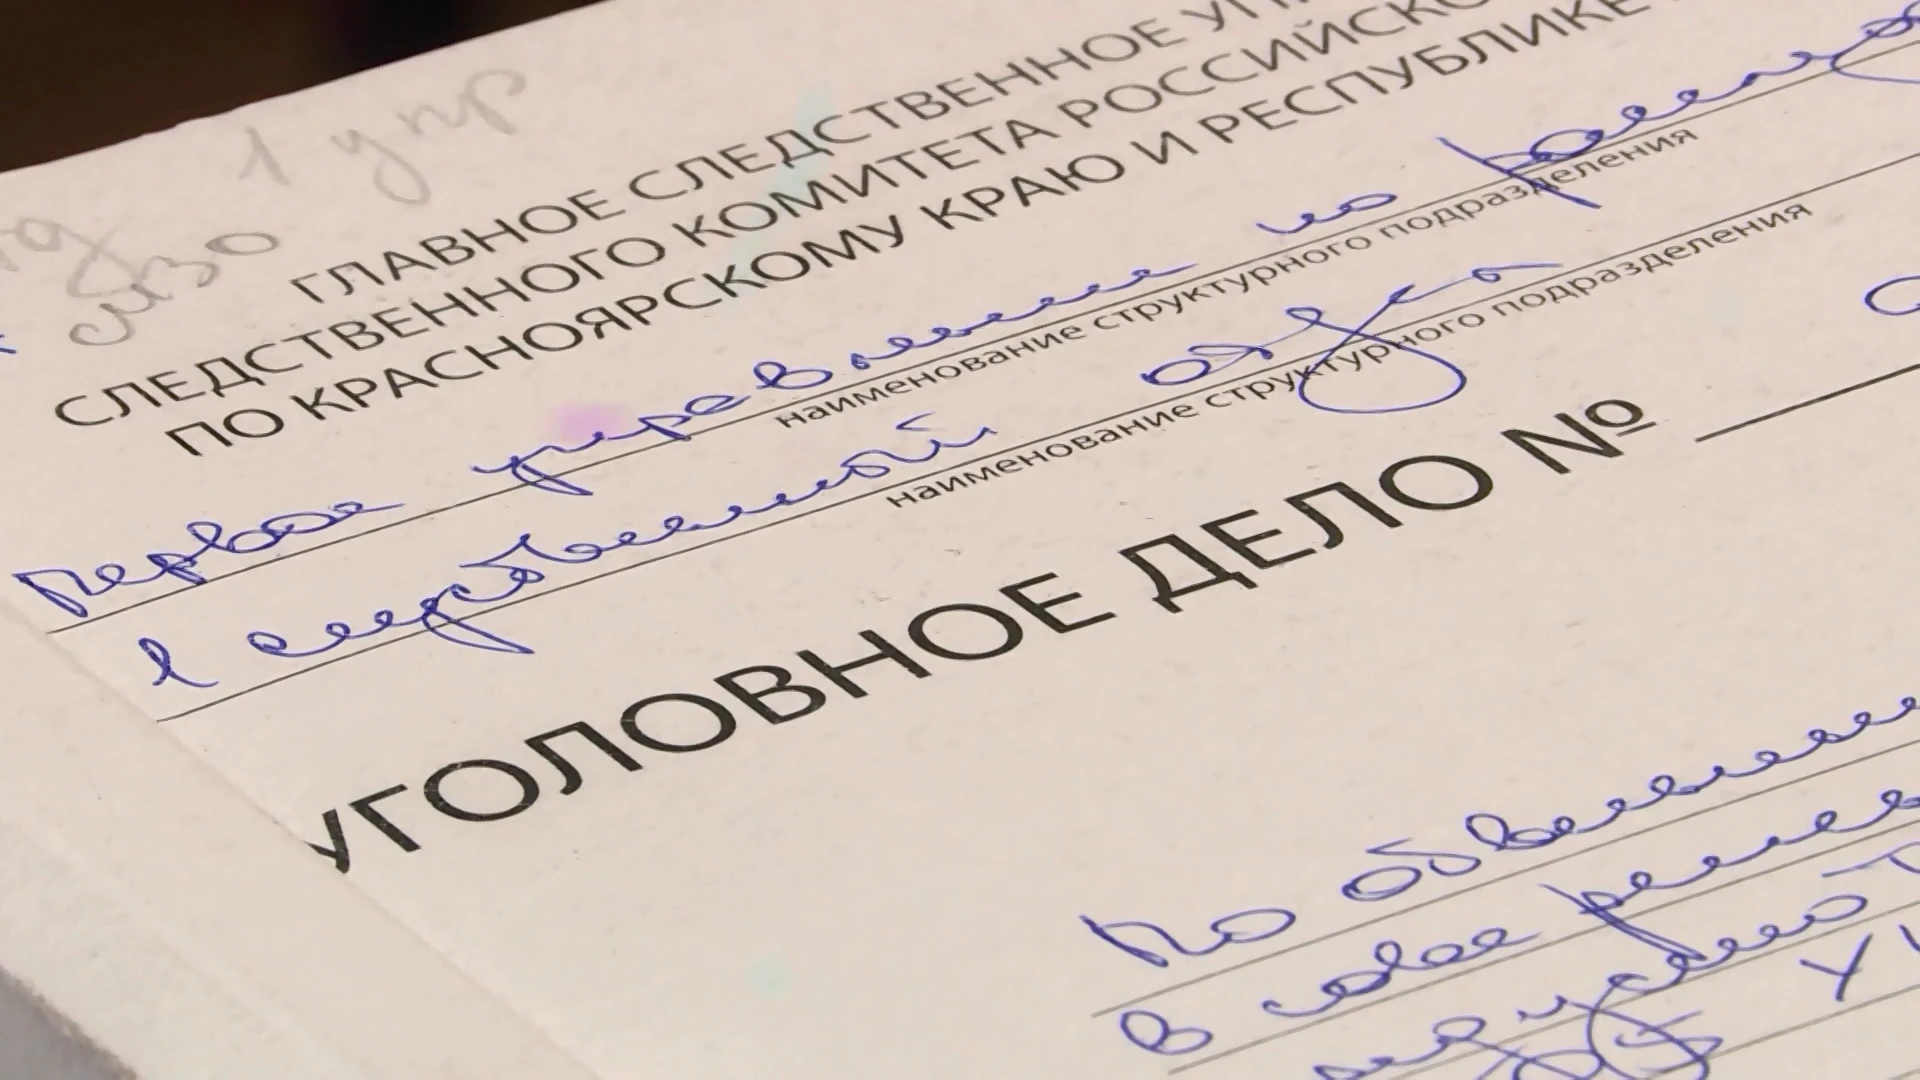 1 упр
ГЛАВНОЕ СЛЕДСТВЕННОЕ УП
СЛЕДСТВЕННОГО КОМИТЕТА РОССИЙСКО
ПО КРАСНОЯРСКОМУ КРАЮ И РЕСПУБЛИКЕ
Первое управление по
наименование структурного подразделения
1 следственный отдел
наименование структурного подразделения
УГОЛОВНОЕ ДЕЛО №
По обвинени
В